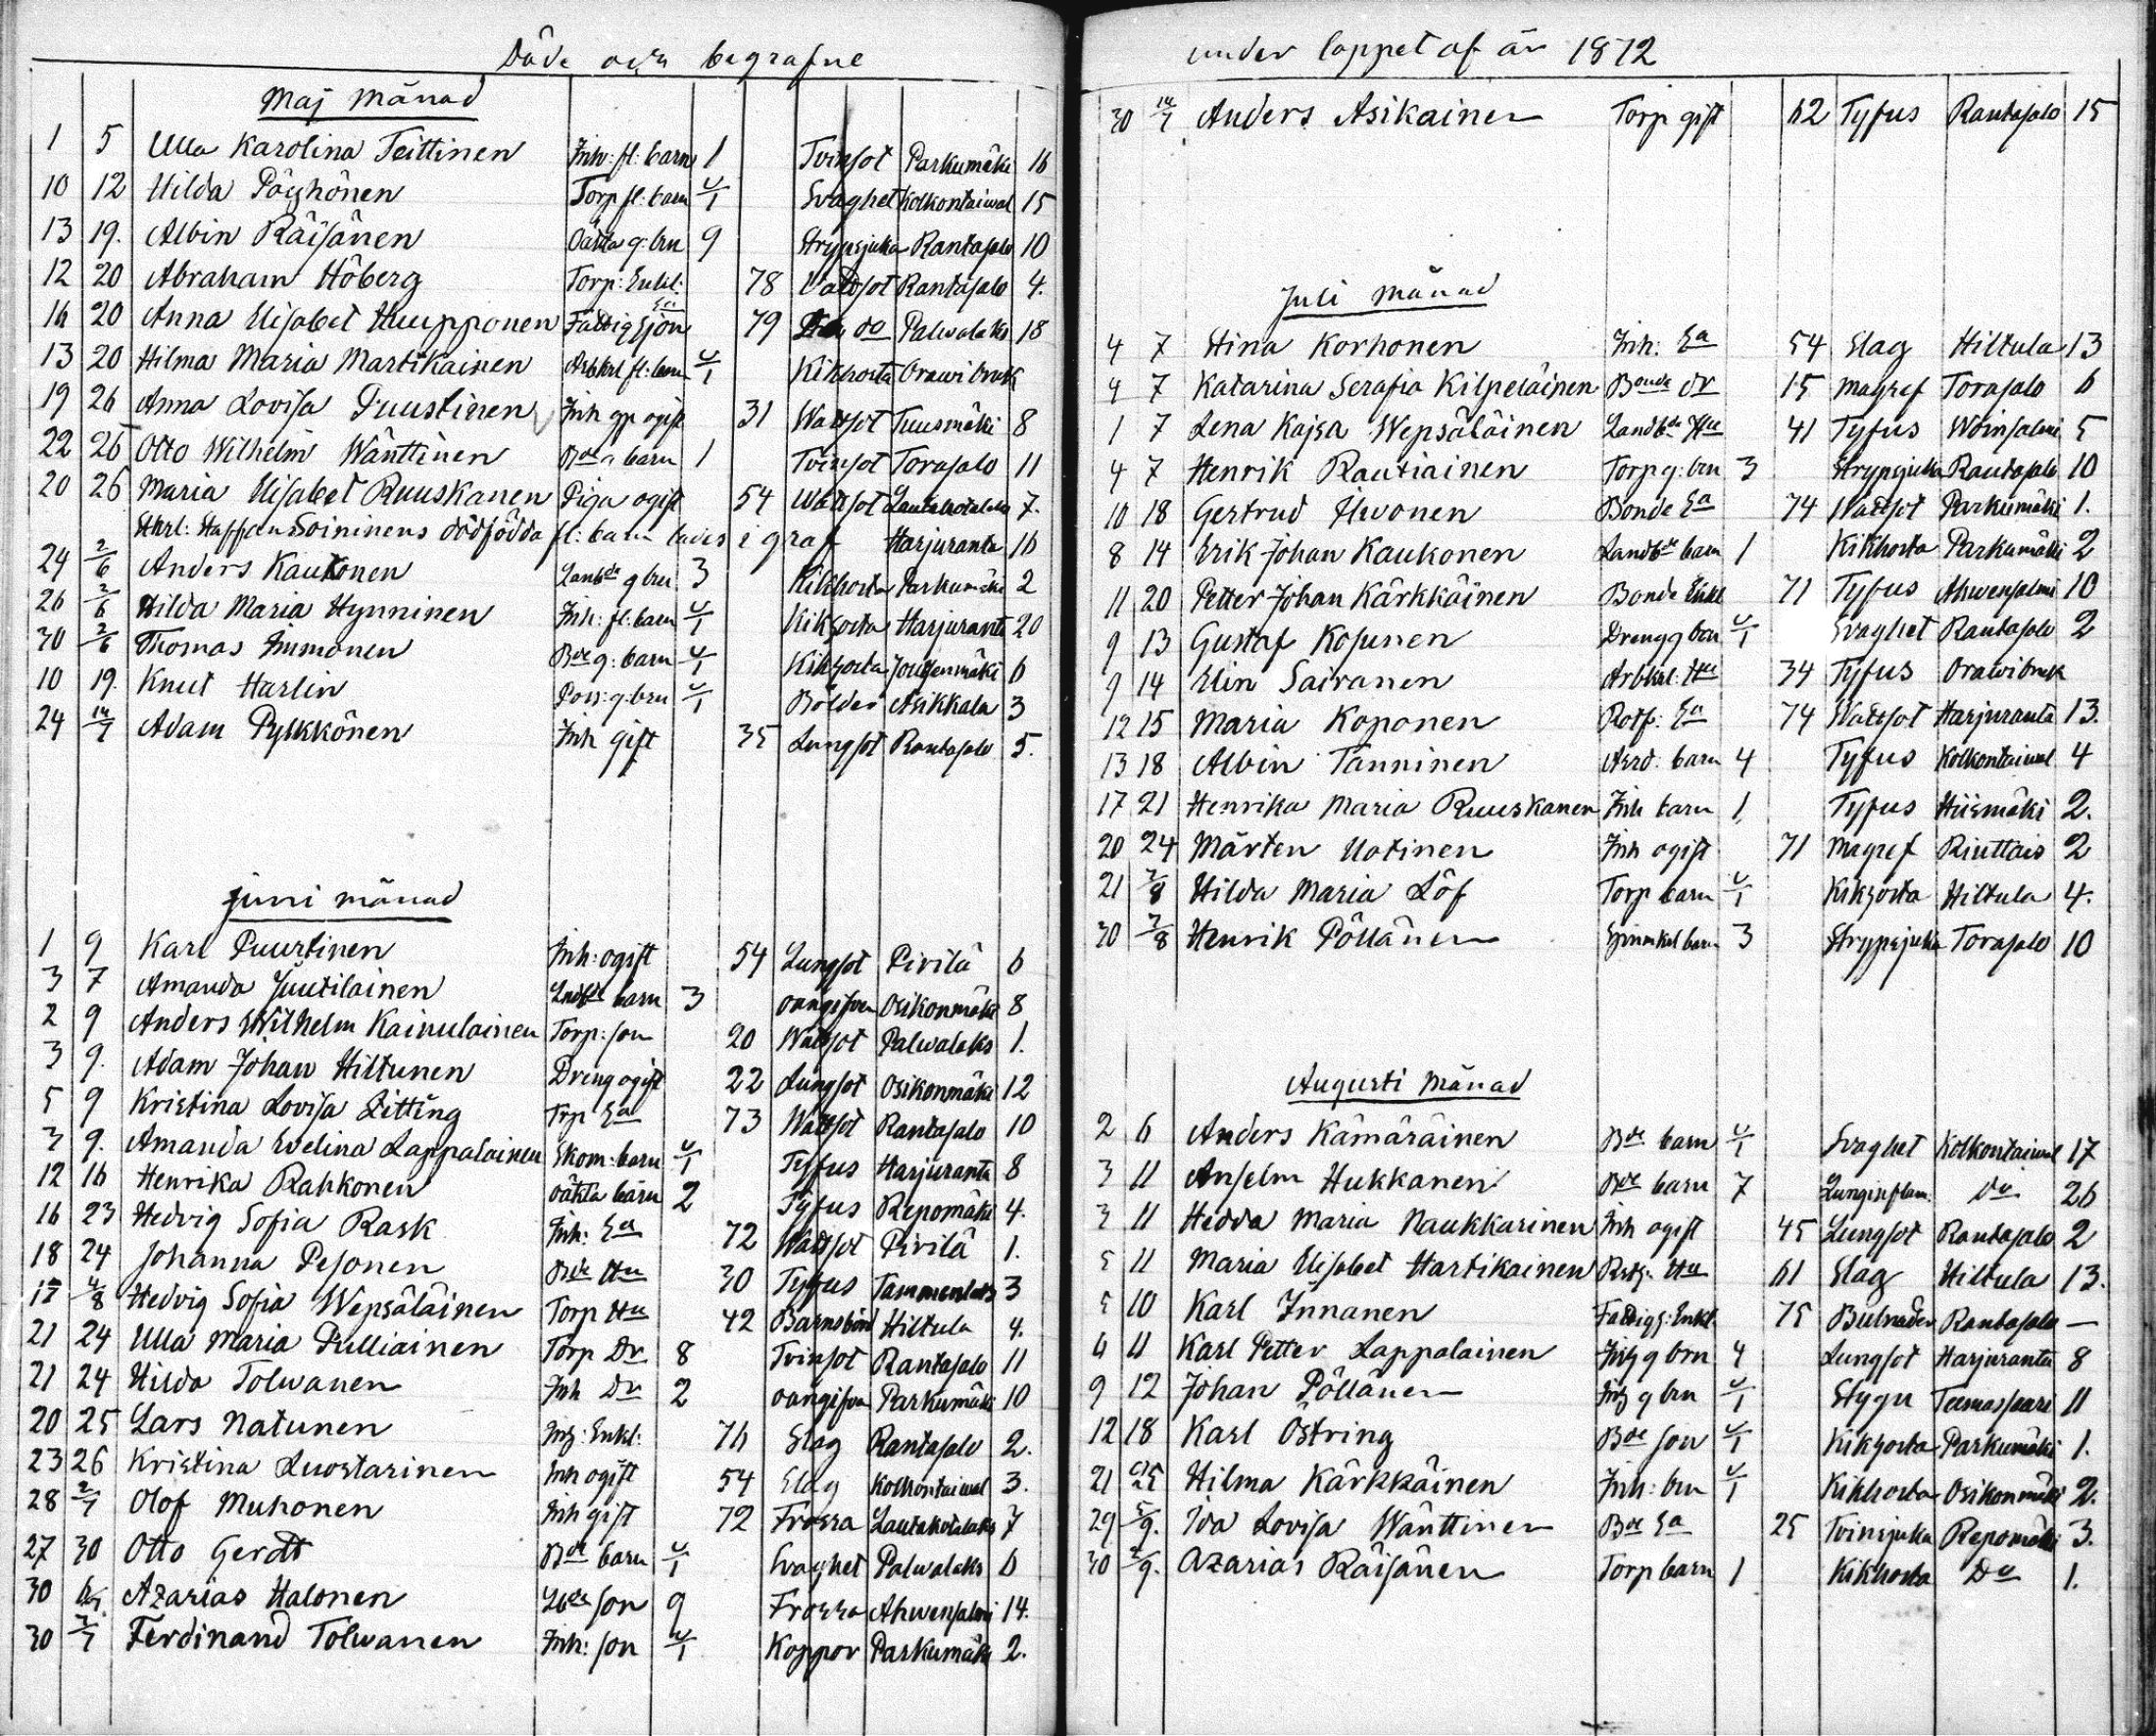 Döde och begrafne
Maj månad
1 5 Ulla Karolina Teittinen Inh: fl: barn 1 Tvinsot Parkumäki 16
10 12 Hilda Pöyhönen Torp fl: barn u/1 Svaghet Kolkontaiwal 15
13 19. Albin Räisänen g: brn 9 Strypsjuka Rantasalo 10
12 20 Abraham Höberg Torp: Enkl: 78 Vattsot Rantasalo 4.
16 20 Anna Elisabet Huupponen Fattighjon Ea 79 do Palwalaks 18
13 20 Hilma Maria Martikainen Arbkrl fl: barn u/1 Kikhosta Orawi bruk
19 26 Anna Lovisa Puustinen Inh gp ogift 31 Wattsot Tuusmäki 8
22 26 Otto Wilhelm Wänttinen Bde barn 1 Tvinsot Torasalo 11
20 26 Maria Elisabet Ruuskanen Piga ogift 54 Wattsot Lautakotalaks 7.
Staffan Soininens dödfödda fl: barn lades i graf Harjuranta 16
24 2/6 Anders Kaukonen Landbde g brn 3 Kikhosta Parkumäki 2
26 2/6 Hilda Maria Hynninen Inh: fl: barn u/1 Kikhosta Harjuranta 20
30 2/6 Thomas Immonen Bde g: barn u/1 Kikhosta Joutsenmäki 6
10 19. Knut Harlin Poss: g: brn u/1 Bölder Asikkala 3
24 14/7 Adam Pylkkönen Inh gift 35 Lungsot Rantasalo 5.
Juni månad
1 9 Karl Puustinen Inh: ogift 54 Lungsot Pirilä 6
3 7 Amanda Juutilainen Landbde barn 3 oangifven Osikonmäki 8
2 9 Anders Wilhelm Kainulainen Torp: son 20 Wattsot Palwalaks 1.
3 9. Adam Johan Hiltunen Dreng ogift 22 Lungsot Osikonmäki 12
5 9 Kristina Lovisa Zitting Trp Ea 73 Wattsot Rantasalo 10
3 9. Amanda Evelina Lappalainen Skom: barn u/1 Tyfus Harjuranta 8
12 16 Henrika Rahkonen oäkta barn 2 Tyfus Repomäki 4.
16 23 Hedvig Sofia Rask Inh: Ea 72 Wattsot Pirilä 1.
18 24 Johanna Pesonen Bde Hu 30 Tyfus Tammenlaks 3
17 4/8 Hedvig Sofia Wepsäläinen Torp Hu 42 Barnsbörd Hiltula 4.
21 24 Ulla Maria Pulliainen Torp Dr 8 Tvinsot Rantasalo 11
21 24 Hilda Tolwanen Inh Dr 2 oangifven Parkumäki 10
20 25 Lars Natunen Inh: Enkl: 76 Slag Rantasalo 2.
23 26 Kristina Luostarinen Inh ogift 54 Slag Kolkontaiwal 3.
28 2/7 Olof Muhonen Inh gift 72 Frossa Lautakotalaks 7
27 30 Otto Gerdt Bde barn u/1 Svaghet Palwalaks 6
30 Azarias Halonen Lbde son 9 Frossa Ahwensalmi 14.
30 7/7 Ferdinand Tolwanen Inh: son u/1 Koppor Parkumäki 2.
under loppet af år 1872
30 14/7 Anders Asikainen Torp gift 62 Tyfus Rantasalo 15
Juli månad
4 7 Stina Korhonen Inh: Ea 54 Slag Hiltula 13
4 7 Katarina Serafia Kilpeläinen Bonde dr 15 Magref Torasalo 6
1 7 Lena Kajsa Wepsäläinen Landbde Hu 41 Tyfus Woinsalmi 5
4 7 Henrik Rautiainen Torp g: brn 3 Strypsjuka Rantasalo 10
10 18 Gertrud Ihvonen Bonde Ea 74 Wattsot Parkumäki 1.
8 14 Erik Johan Kaukonen Landbde barn 1 Kikhosta Parkumäki 2
11 20 Petter Johan Kärkkäinen Bonde Enkl 71 Tyfus Ahwensalmi 10
9 13 Gustaf Kosunen Dreng g brn u/1 Svaghet Rantasalo 2
9 14 Elin Sairanen Arbkrl: Hu 34 Tyfus Orawi bruk
12 15 Maria Koponen Rotf: Ea 74 Wattsot Harjuranta 13.
13 18 Albin Tanninen barn 4 Tyfus Kolkontaiwal 4
17 21 Henrika Maria Ruuskanen Inh barn 1 Tyfus Hiismäki 2.
20 24 Mårten Uotinen Inh ogift 71 Magref 2
21 7/8 Hilda Maria Löf Torp barn u/1 Kikhosta Hiltula 4.
30 7/8 Henrik Pöllänen barn 3 Strypsjuka Torasalo 10
Augusti månad
2 6 Anders Kämäräinen Bde barn u/1 Svaghet Kolkontaiwal 17
3 11 Anselm Hukkanen Bde barn 7 Lunginflam: Do 26
3 11 Hedda Maria Naukkarinen Inh ogift 45 Lungsot Rantasalo 2
5 11 Maria Elisabet Hartikainen Hu 61 Slag Hiltula 13.
5 10 Karl Innanen Fattigg: Enkl. 75 Bulnader Rantasalo —
6 11 Karl Petter Lappalainen Inh g brn 4 Lungsot Harjuranta 8
9 12 Johan Pöllänen Inh g brn u/1 Stygn 11
12 18 Karl Östring Bde son u/1 Kikhosta Parkumäki 1.
21 25 Hilma Kärkkäinen Inh: brn u/1 Kikhosta Osikonmäki 2.
29 5/9. Ida Lovisa Wänttinen Bde Ea 25 Tvinsjuka Repomäki 3.
30 7/9. Azarias Räisänen Torp barn 1 Kikhosta Do 1.